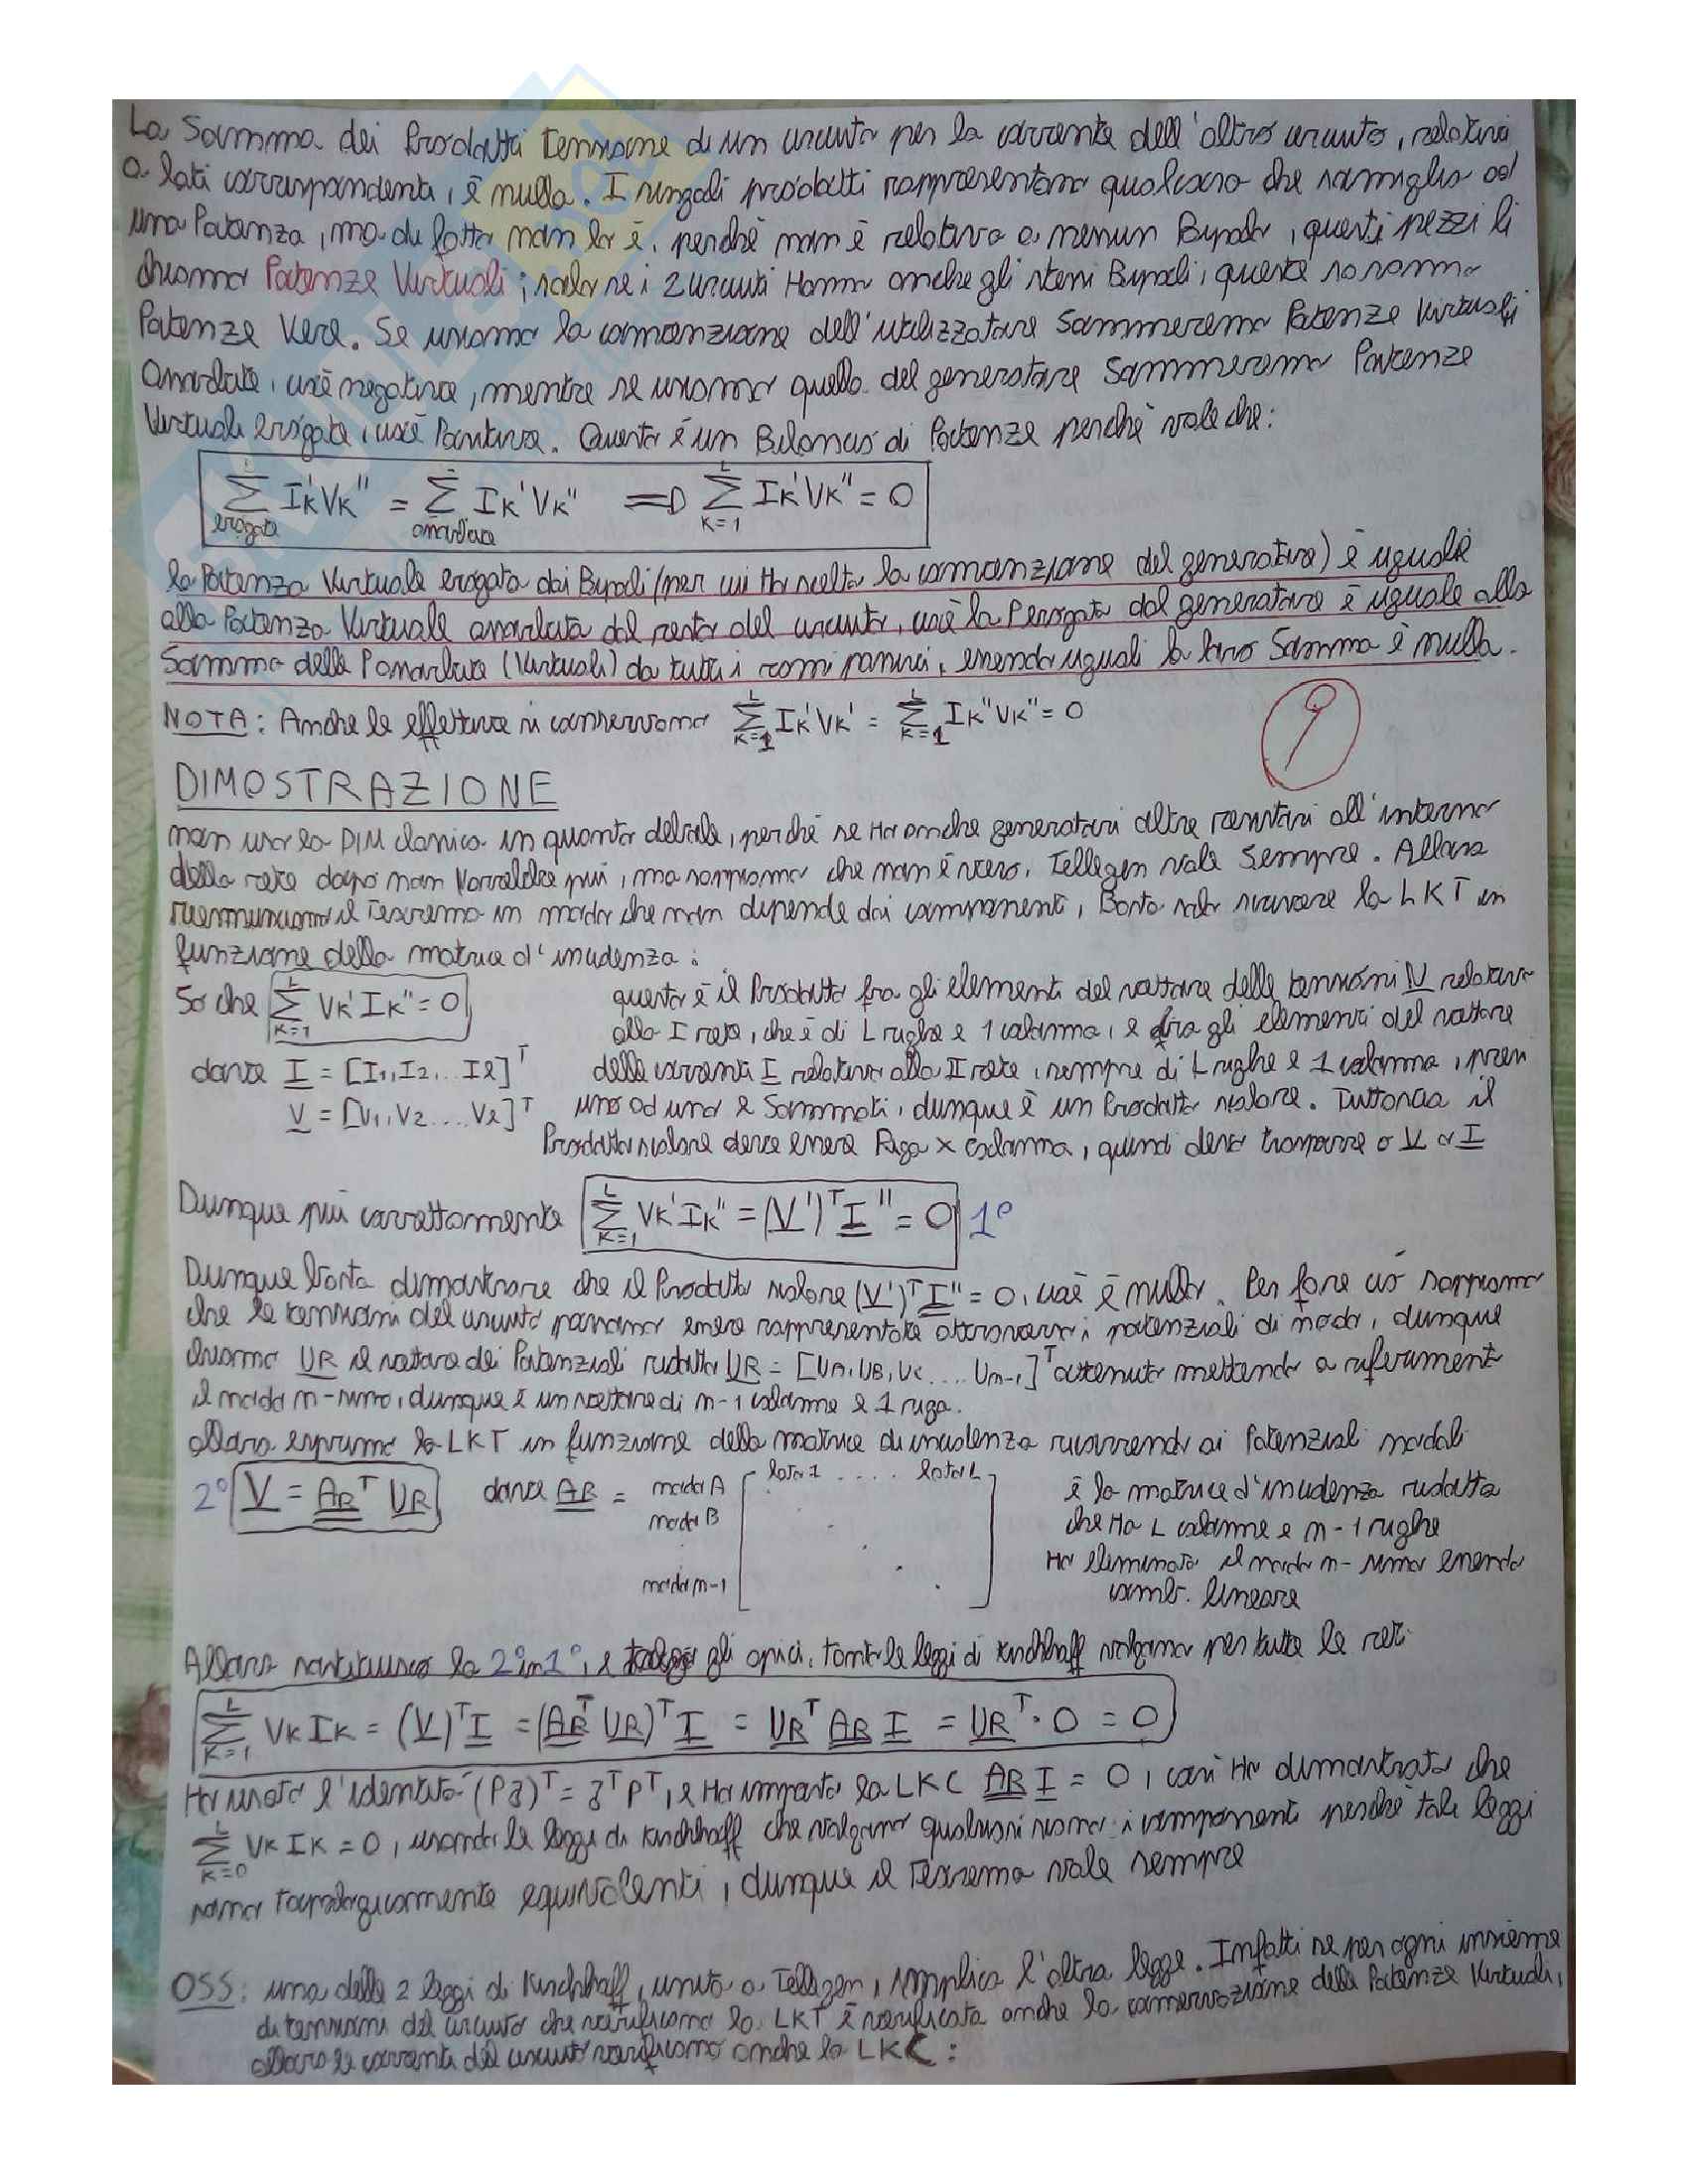 La Somma dei Prodotti tensione di un circuito per la corrente dell'altro circuito, relativi
a lati corrispondenti, è nulla. I singoli prodotti rappresentano qualcosa che somiglia ad
una Potenza, ma di fatto non lo è, perchè non è relativa a nessun Bipolo, questi pezzi li
chiamo Potenze Virtuali; solo se i 2 circuiti Hanno anche gli stessi Bipoli, queste saranno
Potenze Vere. Se usiamo la convenzione dell'utilizzatore Sommeremo Potenze Virtuali
Assorbite, cioè negative, mentre se usiamo quella del generatore Sommeremo Potenze
Virtuali erogate, cioè Positive. Questo è un Bilancio di Potenze perchè vale che:
∑ erogate Ik'Vk'' = ∑ assorbite Ik'Vk'' ⇒ ∑ K=1 L Ik'Vk'' = 0
la Potenza Virtuale erogata dai Bipoli (per cui Ho scelto la convenzione del generatore) è uguale
alla Potenza Virtuale assorbita dal resto del circuito, cioè la Perogata dal generatore è uguale alla
Somma delle Passorbite (Virtuali) da tutti i rami passivi, essendo uguali la loro Somma è nulla.
NOTA: Anche le effettive si conservano ∑ K=1 L Ik'Vk' = ∑ K=1 L Ik''Vk'' = 0
9
DIMOSTRAZIONE
non uso la DIM classica in quanto debole, perchè se Ho anche generatori oltre resistori all'interno
della rete dopo non Varrebbe più, ma sappiamo che non è vero, Tellegen vale Sempre. Allora
il Teorema in modo che non dipende dai componenti, Basta solo scrivere la LKT in
funzione della matrice d'incidenza:
So che ∑ K=1 L Vk'Ik'' = 0 questo è il Prodotto fra gli elementi del vettore delle tensioni V relativo
alla I rete, che è di L righe e 1 colonna, e fra gli elementi del vettore
dove I = [I1, I2, ... Il]T delle correnti I relativo alla II rete, sempre di L righe e 1 colonna, presi
V = [V1, V2 .... Vl]T uno ad uno e Sommati, dunque è un Prodotto scalare. Tuttavia il
Prodotto scalare deve essere Riga x Colonna, quindi devo trasporre o V o I
Dunque più correttamente ∑ K=1 L Vk'Ik'' = (V')T I'' = 0 1°
Dunque basta dimostrare che il Prodotto scalare (V')T I'' = 0, cioè è nullo. Per fare ciò sappiamo
che le tensioni del circuito possono essere rappresentate attraverso i potenziali di nodo, dunque
chiamo UR il vettore dei Potenziali ridotto UR = [UA, UB, UC .... Un-1]T ottenuto mettendo a riferimento
il nodo n-simo, dunque è un vettore di n-1 colonne e 1 riga.
allora esprimo la LKT in funzione della matrice di incidenza ricorrendo ai Potenziali nodali
2° V = ART UR dove AR = lato 1 ..... lato L
nodo A è la matrice d'incidenza ridotta
nodo B che Ha L colonne e n-1 righe
Ho eliminato il nodo n-simo essendo
nodo n-1 comb. lineare
Allora sostituisco la 2° in 1°, e tolgo gli apici, tanto le leggi di Kirchhoff valgono per tutte le reti
∑ K=1 L Vk Ik = (V)T I = (ART UR)T I = URT AR I = URT · 0 = 0
Ho usato l'identità (PJ)T = JT PT, e Ho imposto la LKC AR I = 0, così Ho dimostrato che
∑ K=0 L Vk Ik = 0, usando le leggi di Kirchhoff che valgono qualsiasi siano i componenti perchè tali leggi
sono topologicamente equivalenti, dunque il Teorema vale sempre
OSS: una delle 2 leggi di Kirchhoff, unita a Tellegen, implica l'altra legge. Infatti se per ogni insieme
di tensioni del circuito che verificano la LKT è verificata anche la conservazione delle Potenze Virtuali,
allora le correnti del circuito verificano anche la LKC: